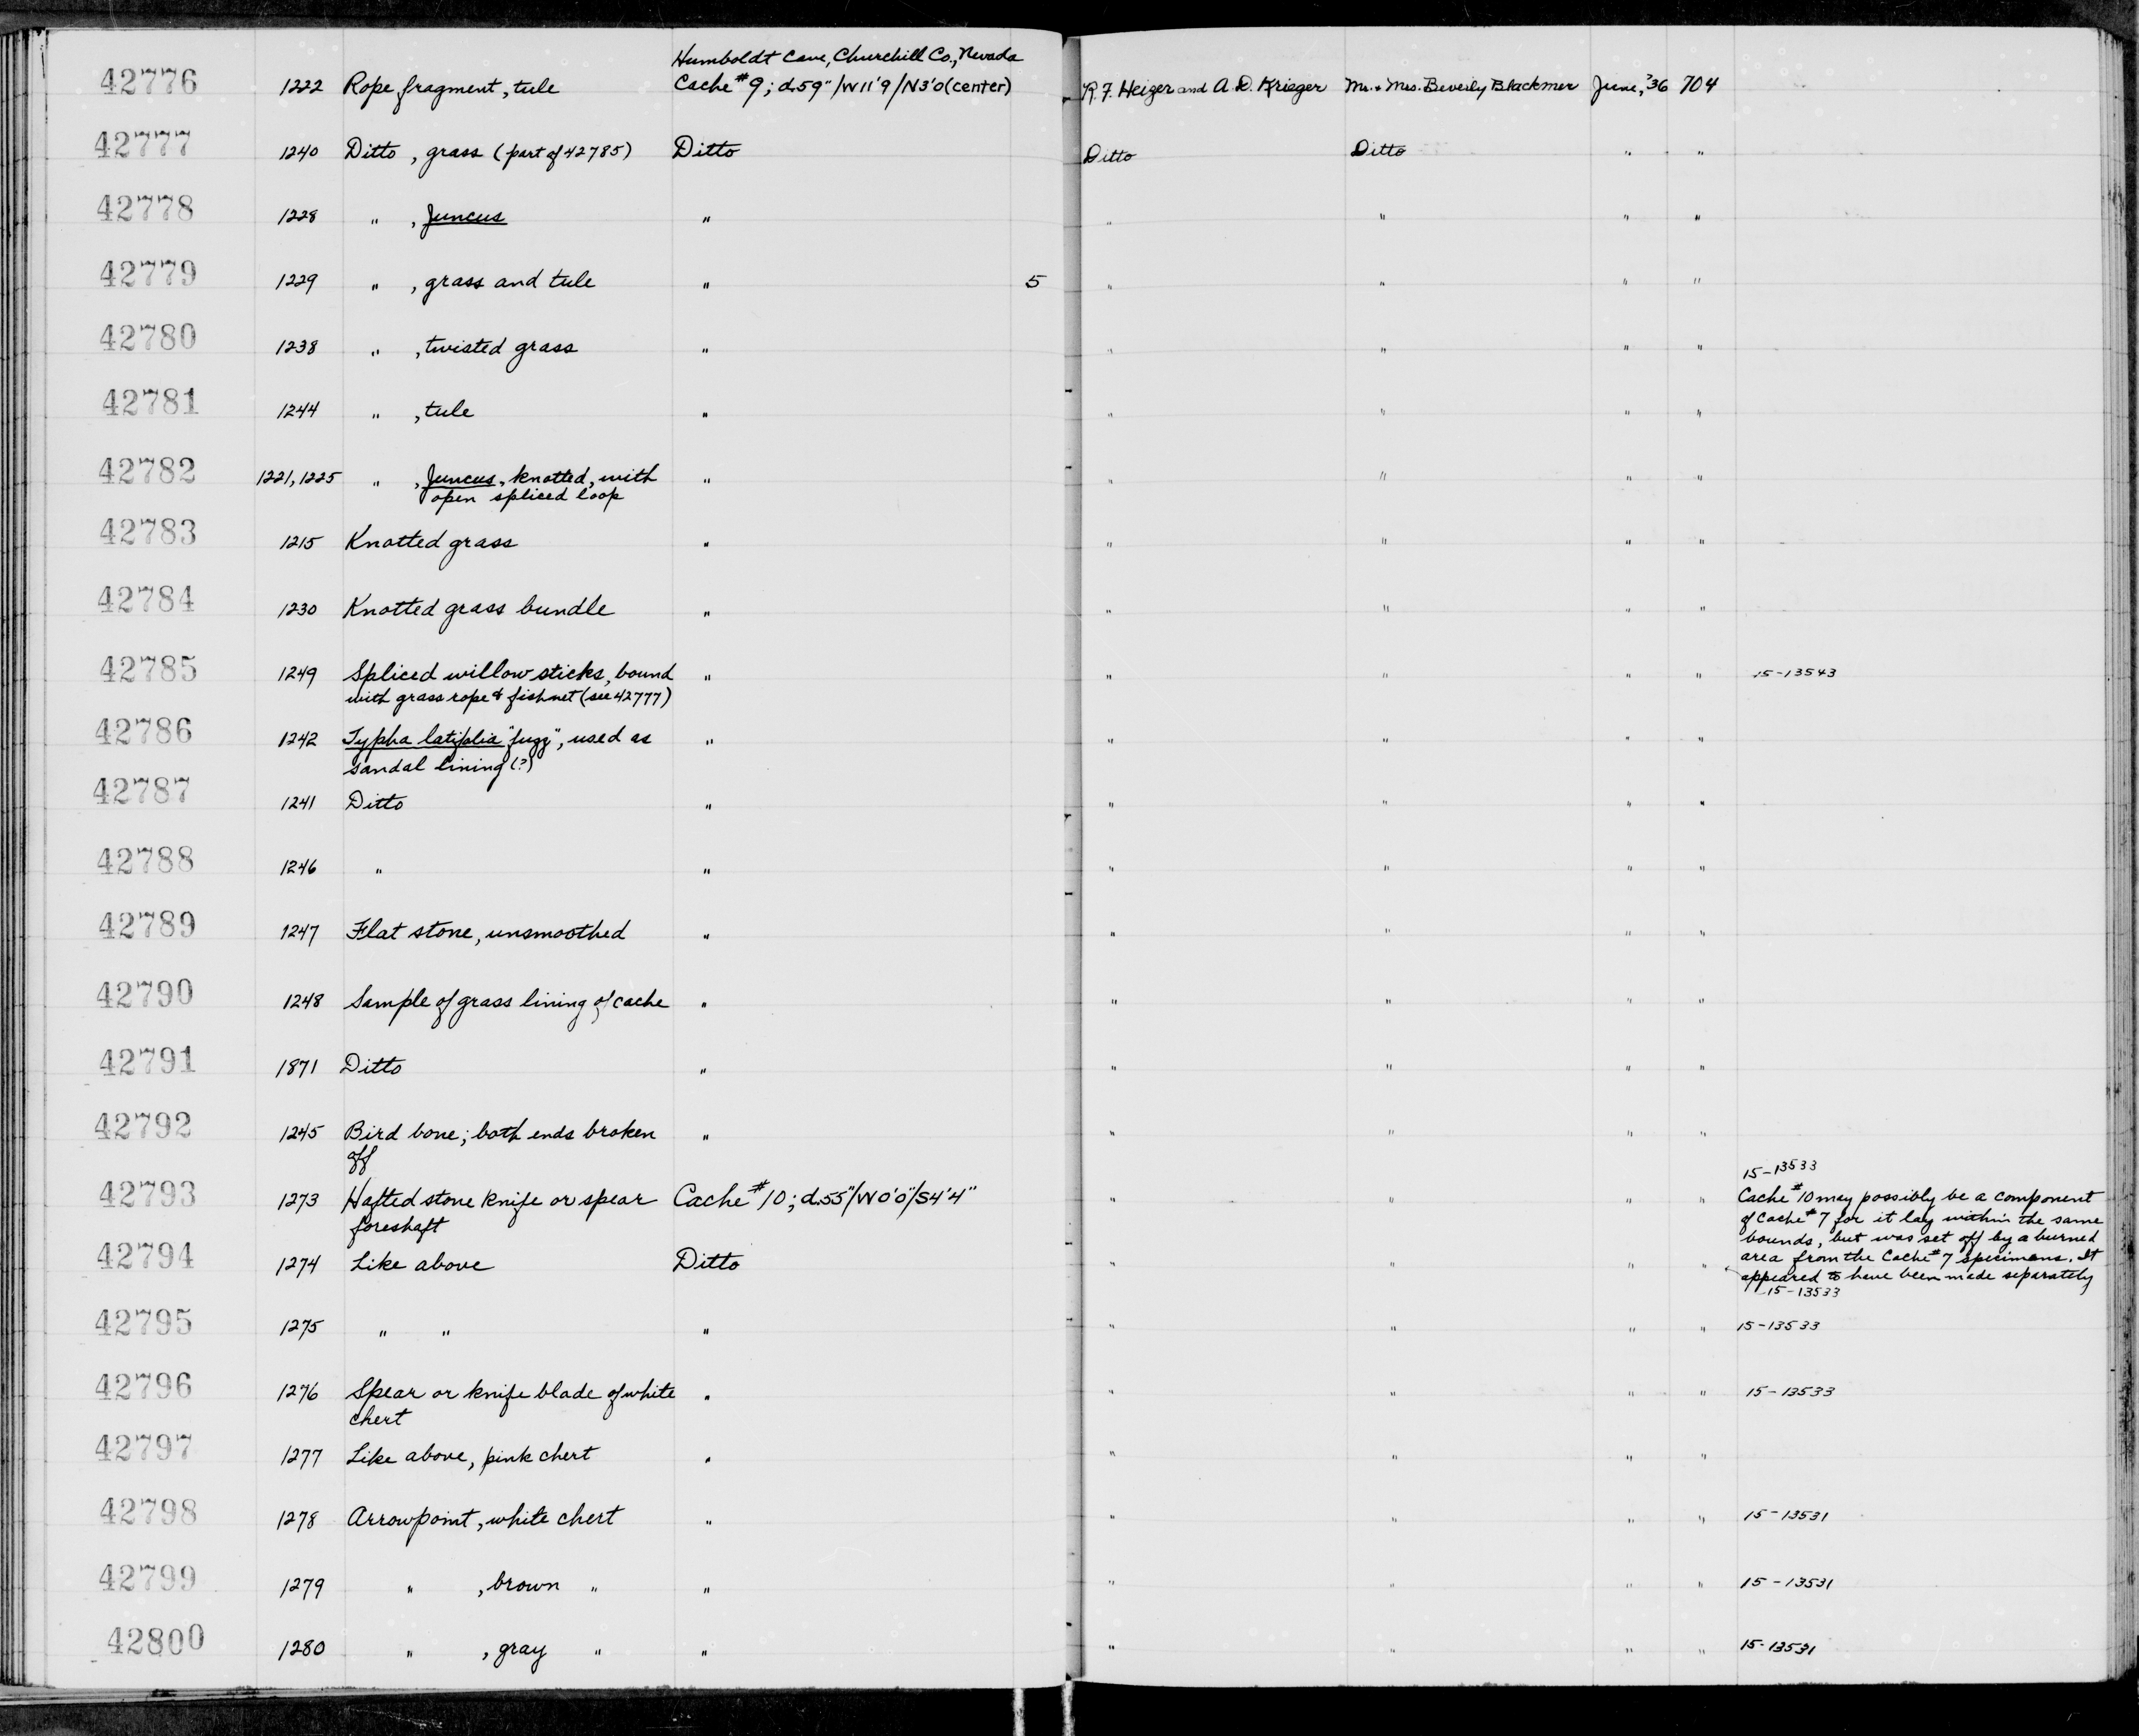 Humboldt Cave, Churchill Co., Nevada
42776 1222 Rope fragment, tule Cache #9; d.59"/W11'9/N3'0(center) R.F. Heizer and A.D. Krieger Mr. + Mrs. Beverly Blackmer June, '36 704
42777 1240 Ditto, grass (part of 42785) Ditto Ditto Ditto " "
42778 1228 " , Juncus " " " " "
42779 1229 " , grass and tule " 5 " " " "
42780 1238 " , twisted grass " " " " "
42781 1244 " , tule " " " " "
42782 1221, 1225 " , Juncus, knotted, with " " " " "
open spliced loop
42783 1215 Knotted grass " " " " "
42784 1230 Knotted grass bundle " " " " "
42785 1249 Spliced willow sticks, bound " " " " " 15-13543
with grass rope & fishnet (see 42777)
42786 1242 Typha latifolia "fuzz", used as " " " " "
sandal lining (?)
42787 1241 Ditto " " " " "
42788 1246 " " " " " "
42789 1247 Flat stone, unsmoothed " " " " "
42790 1248 Sample of grass lining of cache " " " " "
42791 1871 Ditto " " " " "
42792 1245 Bird bone; both ends broken " " " " "
off
15-13533
42793 1273 Hafted stone knife or spear Cache #10; d.55"/W0'0"/S4'4" " " " " Cache #10 may possibly be a component
foreshaft of Cache #7 for it lay within the same
bounds, but was set off by a burned
42794 1274 Like above Ditto " " " " area from the Cache #7 specimens. It
appeared to have been made separately
15-13533
42795 1275 " " " " " " " 15-13533
42796 1276 Spear or knife blade of white " " " " " 15-13533
chert
42797 1277 Like above, pink chert " " " " "
42798 1278 Arrowpoint, white chert " " " " " 15-13531
42799 1279 " , brown " " " " " " 15-13531
42800 1280 " , gray " " " " " " 15-13531